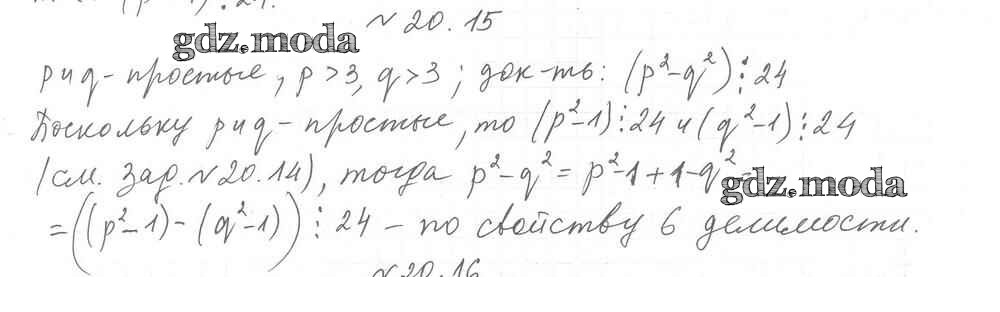 № 20.15
gdz.moda
p и q - простые, p > 3, q > 3; док-ть: (p² - q²) ⋮ 24
Поскольку p и q - простые, то (p² - 1) ⋮ 24 и (q² - 1) ⋮ 24
(см. зад. № 20.14), тогда p² - q² = p² - 1 + 1 - q² =
gdz.moda
= ((p² - 1) - (q² - 1)) ⋮ 24 - по свойству 6 делимости.
№ 20.16